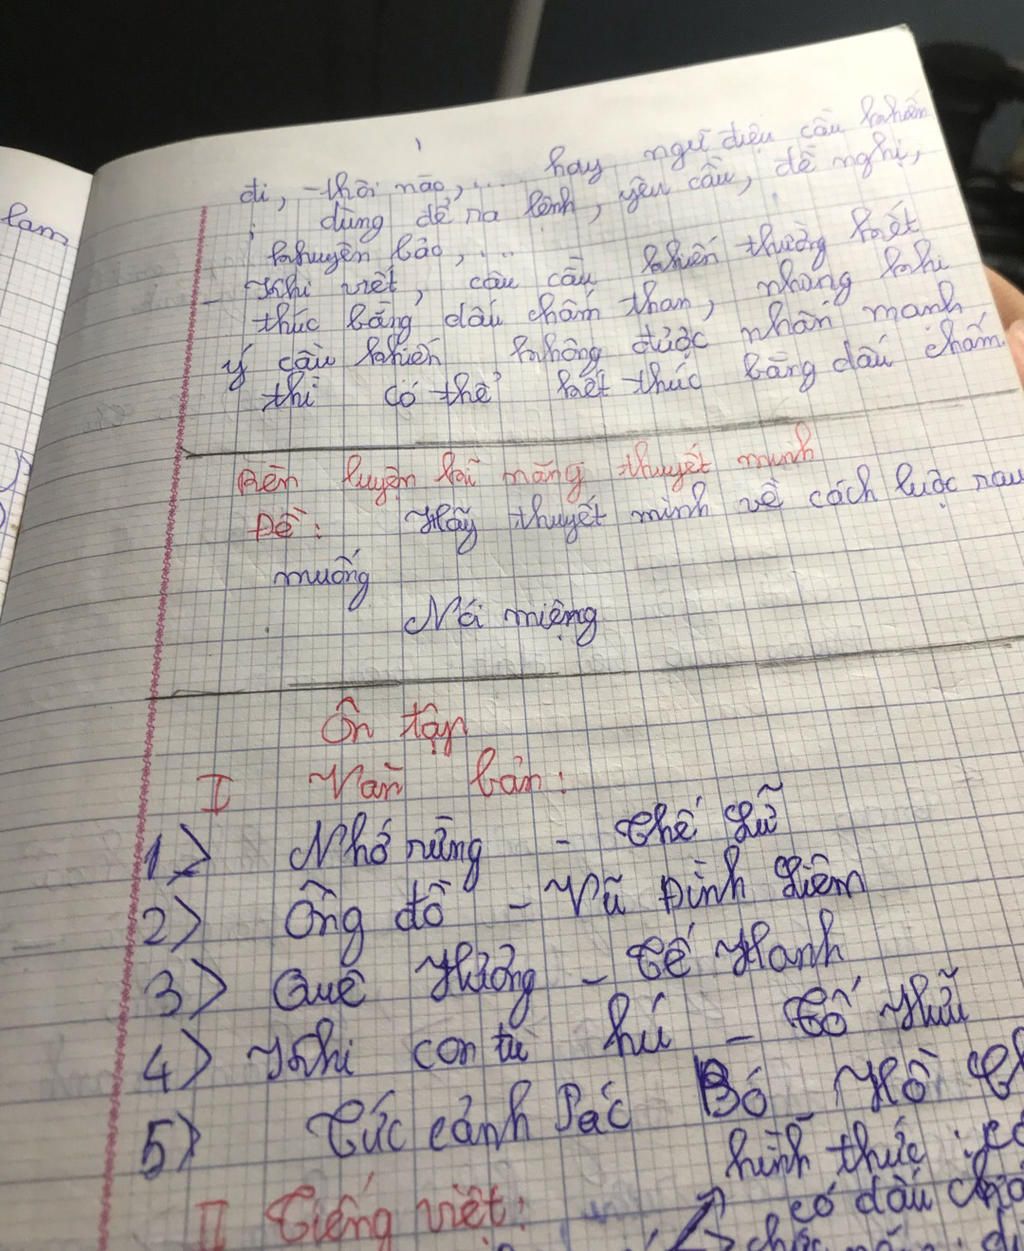 lam
đi, -thôi nào,... hay ngữ điệu cầu khiến
; dùng để ra lệnh, yêu cầu, đề nghị,
khuyên bảo,...
- Khi viết, câu cầu khiến thường kết
thúc bằng dấu chấm than, nhưng khi
ý cầu khiến không được nhấn mạnh
thì có thể kết thúc bằng dấu chấm
Rèn luyện kĩ năng thuyết minh
Đề: Hãy thuyết minh về cách luộc rau
muống
Nói miệng
Ôn tập
I Văn bản:
1> Nhớ rừng - Thế Lữ
2> Ông đồ - Vũ Đình Liêm
3> Quê Hương - Tế Hanh
4> Khi con tu hú - Tố Hữu
5> Tức cảnh Pác Bó Hồ
II Tiếng việt:
hình thức :
có dấu